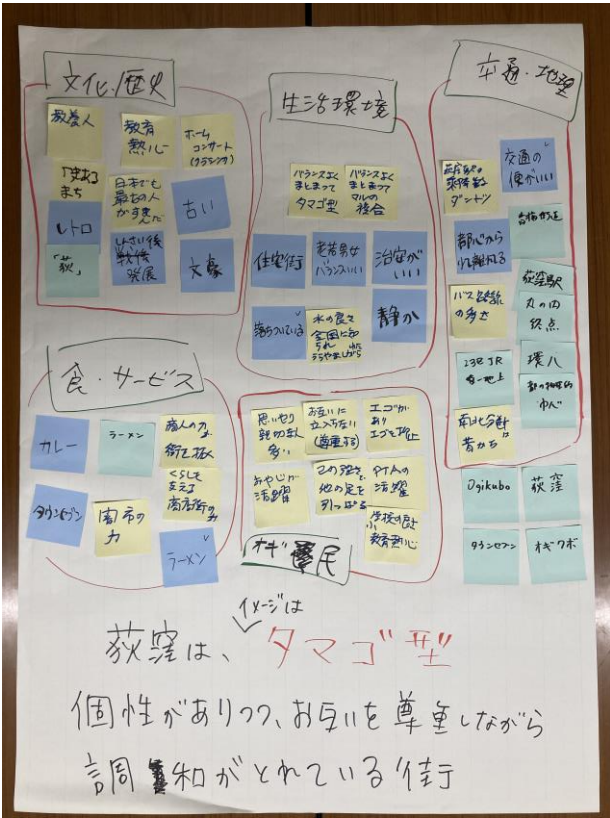 文化・歴史
教養人
教育
熱心
ホーム
コンサート
(クラシック)
まち
日本でも
最初の人
が
古い
レトロ
「荻」
しんさい後
戦後
発展
文豪
生活環境
バランスよく
まとまって
タマゴ型
バランスよく
まとまって
マルの
複合
住宅街
老若男女
バランスいい
治安が
いい
落ちついている
水の良さ
全国に知
られ
うらやましがら
れた
静か
交通・地理
荻窪駅の
乗降客数
ダントツ
交通の
便がいい
都心から
少し離れてる
青梅街道
バス路線
の多さ
荻窪駅
丸の内
終点
23区JR
唯一地上
環八
南北分断
昔から
Ogikubo
荻窪
タウンセブン
オギクボ
食・サービス
カレー
ラーメン
商人の力が
街を拓く
くらしを
支える
商店街の力
タウンセブン
闇市の
力
ラーメン
思いやり
親切な人
多い
お互いに
立入らない
(尊重する)
エゴが
あり
エゴを抑止
おやじが
活躍
この強さを
他の足を
引っぱる
PTAの
活躍
学校の良さ
小
教育熱心
オギ民
荻窪は、イメージはタマゴ型
個性がありつつ、お互いを尊重しながら
調和がとれている街